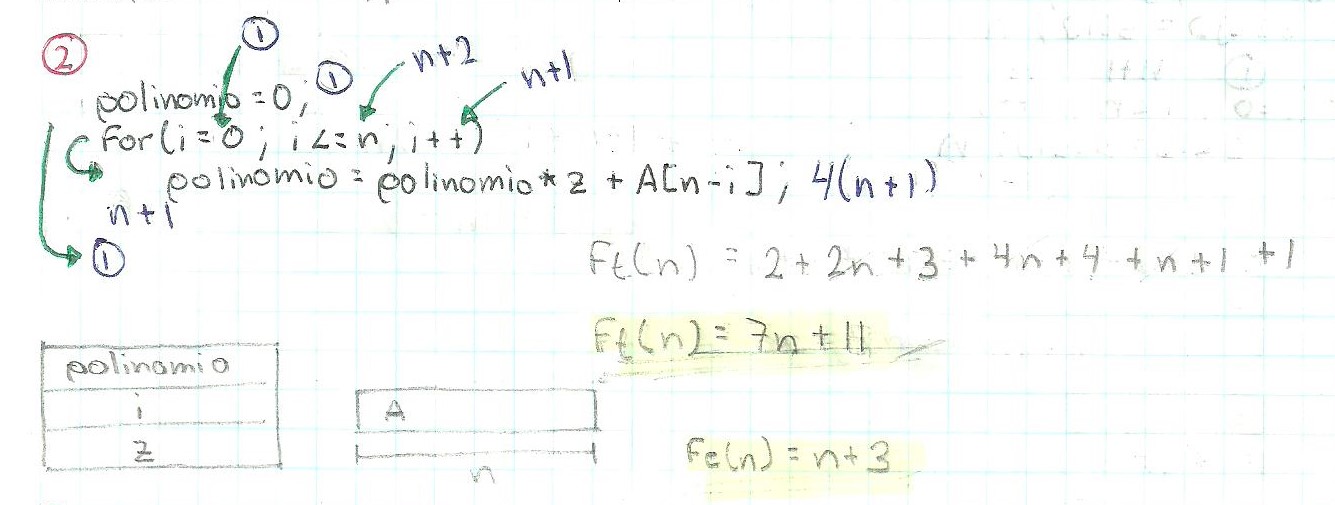 ② ①
polinomio = 0; ①
n+2
n+1
for(i = 0; i <= n; i++)
polinomio = polinomio * z + A[n-i]; 4(n+1)
n+1
①
Ft(n) = 2 + 2n + 3 + 4n + 4 + n + 1 + 1
Ft(n) = 7n + 11
polinomio
i
z
A
n
Fe(n) = n + 3